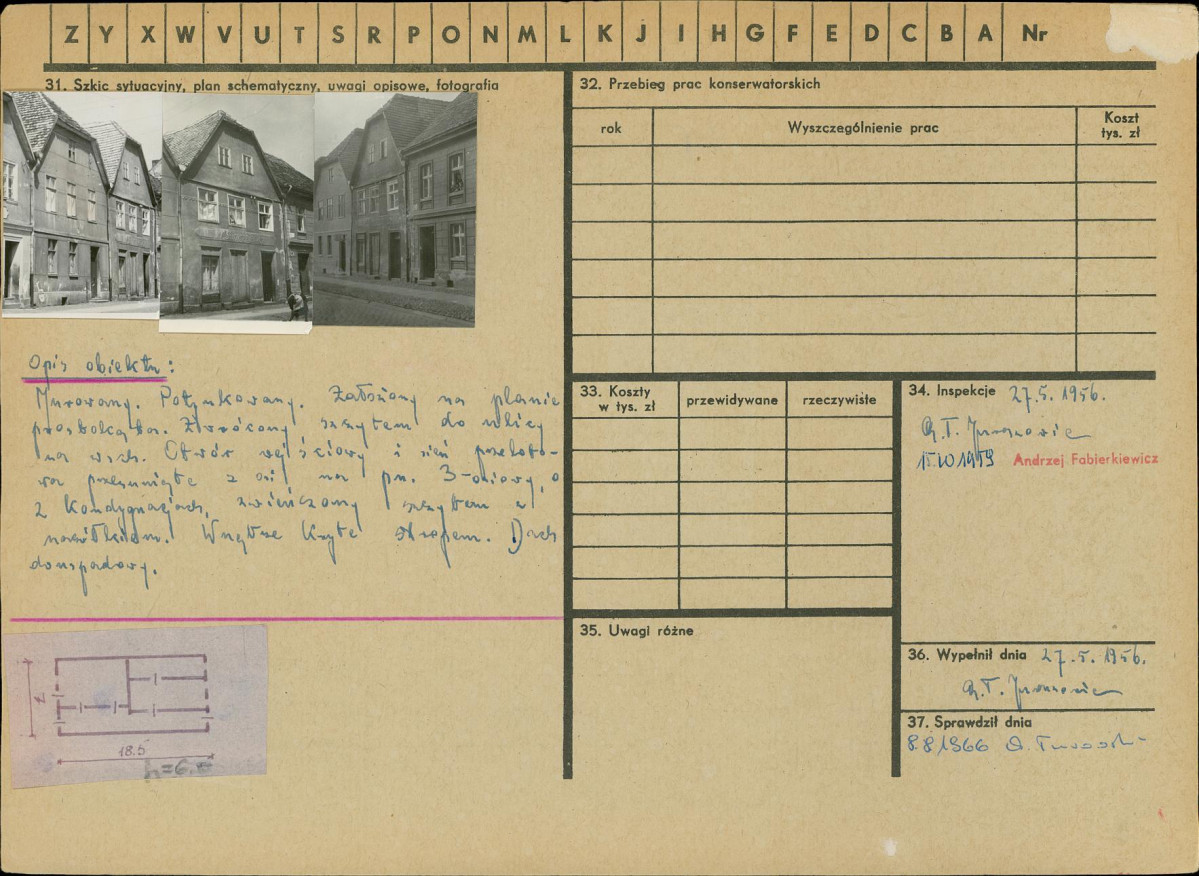 Z Y X W V U T S R P O N M L K J I H G F E D C B A Nr
31. Szkic sytuacyjny, plan schematyczny, uwagi opisowe, fotografia
Opis obiektu:
Murowany. Potynkowany. Założony na planie
prostokąta. Zwrócony szczytem do ulicy
na wsch. Otwór wejściowy i sień przeloto-
wa przesunięte z osi na pn. 3-osiowy, o
2 kondygnacjach, zwieńczony szczytem z
naczółkiem. Wnętrze kryte stropem. Dach
dwuspadowy.
7
18.5
h=6.
32. Przebieg prac konserwatorskich
rok
Wyszczególnienie prac
Koszt
tys. zł
33. Koszty
w tys. zł
przewidywane
rzeczywiste
34. Inspekcje 27.5.1956.
15.VII 1959 Andrzej Fabierkiewicz
35. Uwagi różne
36. Wypełnił dnia 27.5.1956.
37. Sprawdził dnia
8.8.1966